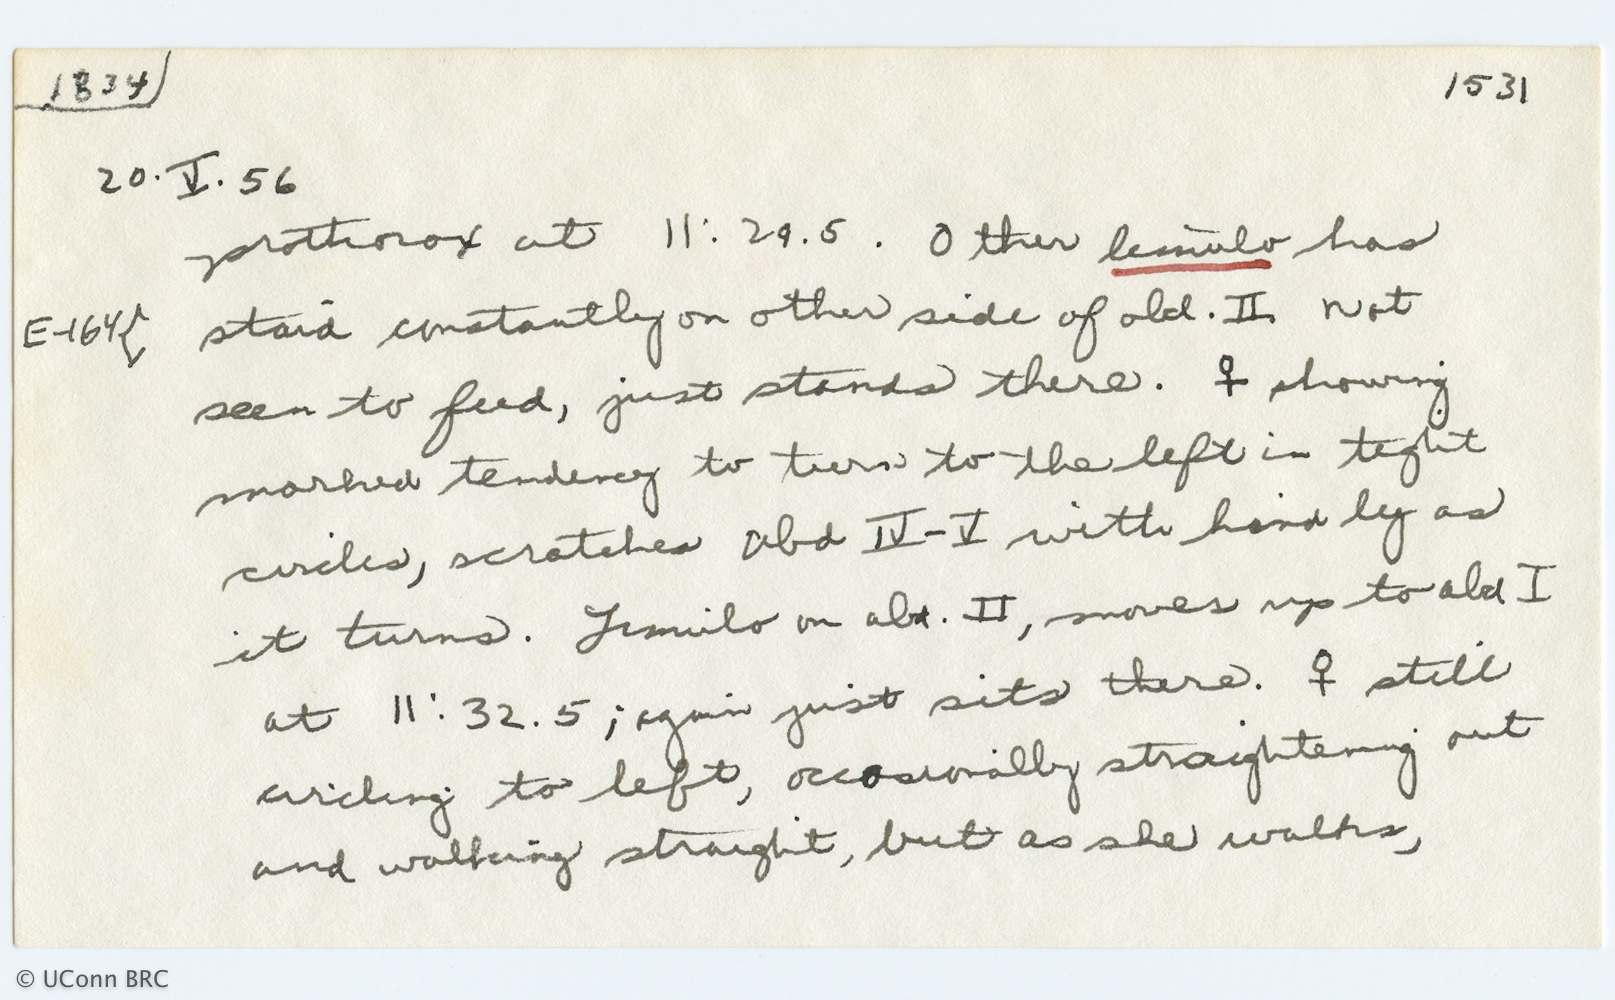 1834
1531
20.V.56
prothorax at 11:29.5. Other lemulo has
E-164{ staid constantly on other side of abd. II. Not
seen to feed, just stands there. ♀ showing
marked tendency to turn to the left in tight
circles, scratches abd IV-V with hind leg as
it turns. Lemulo on abd. II, moves up to abd I
at 11:32.5; again just sits there. ♀ still
circling to left, occasionally straightening out
and walking straight, but as she walks,
© UConn BRC